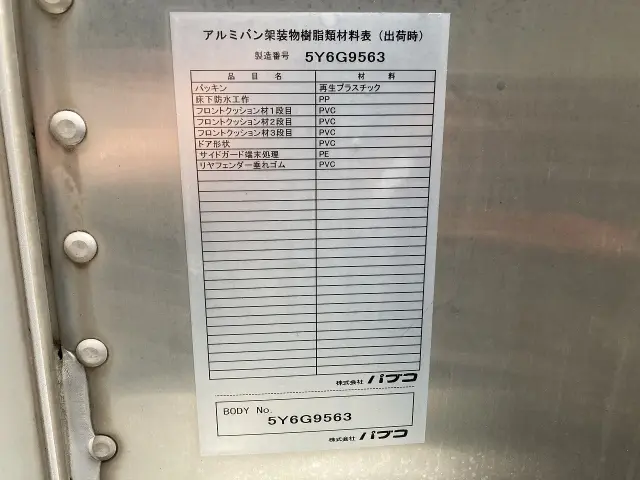 アルミバン架装物樹脂類材料表（出荷時）
製造番号 5Y6G9563
品目名 材料
パッキン 再生プラスチック
床下防水工作 PP
フロントクッション材1段目 PVC
フロントクッション材2段目 PVC
フロントクッション材3段目 PVC
ドア形状 PVC
サイドガード端末処理 PE
リヤフェンダー垂れゴム PVC
株式会社 パブコ
BODY No.
5Y6G9563
株式会社 パブコ